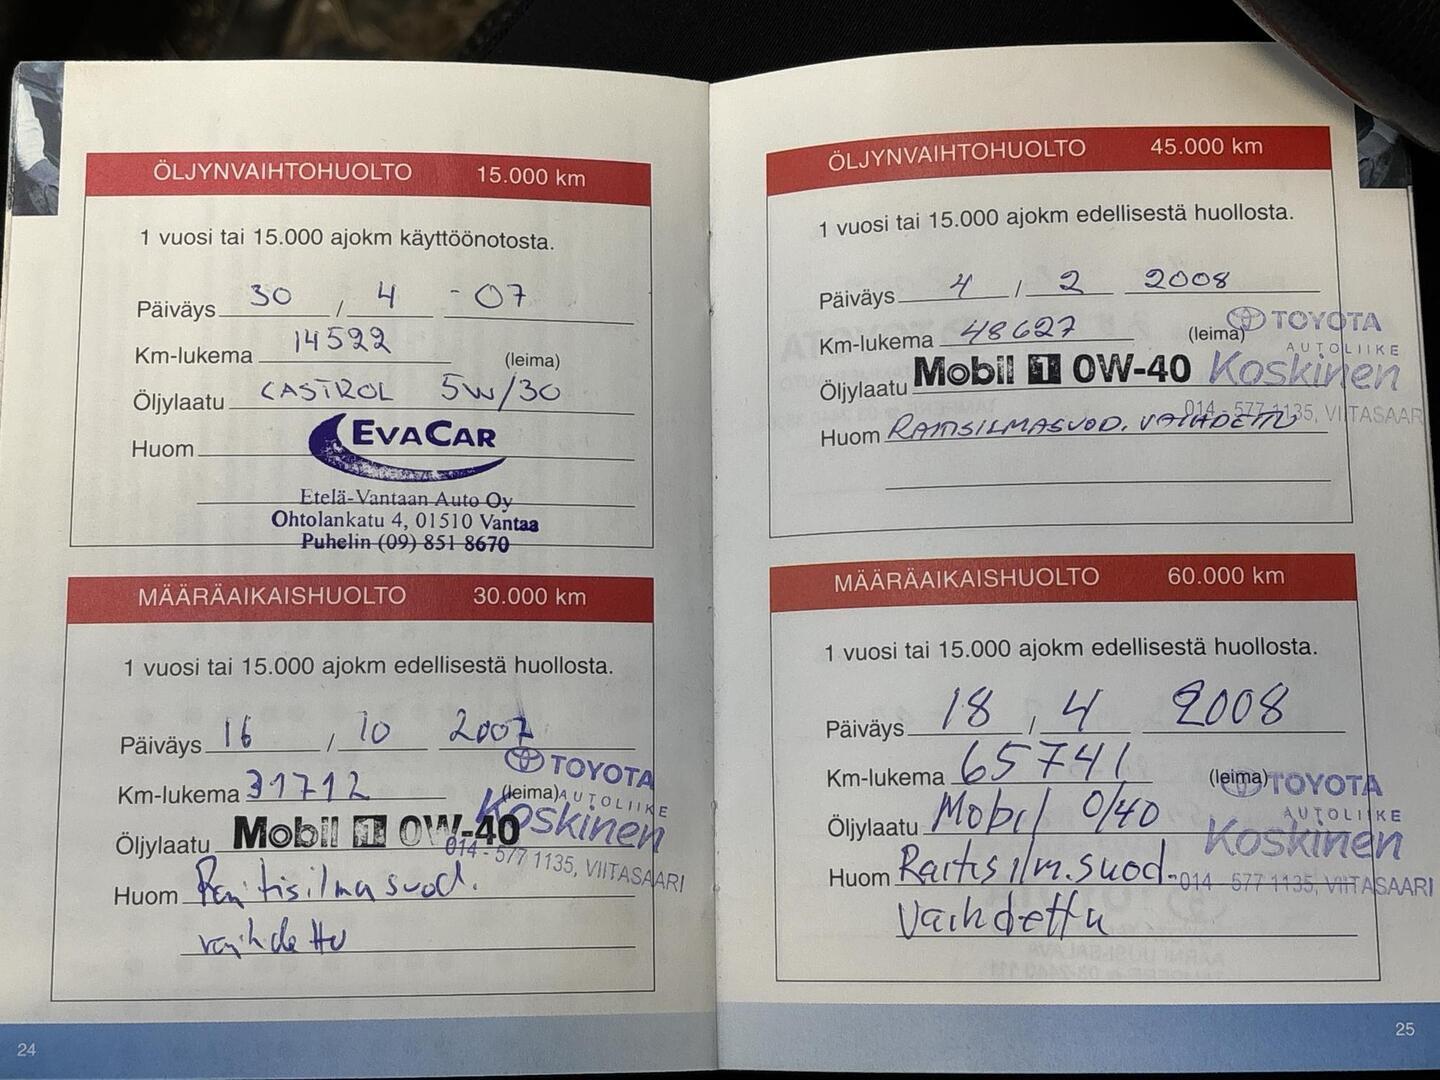 ÖLJYNVAIHTOHUOLTO 15.000 km
1 vuosi tai 15.000 ajokm käyttöönotosta.
Päiväys 30 / 4 - 07
Km-lukema 14522 (leima)
Öljylaatu CASTROL 5W/30
Huom EVACAR
Etelä-Vantaan Auto Oy
Ohtolankatu 4, 01510 Vantaa
Puhelin (09) 851 8670
MÄÄRÄAIKAISHUOLTO 30.000 km
1 vuosi tai 15.000 ajokm edellisestä huollosta.
Päiväys 16 / 10 2007
TOYOTA
Km-lukema 31712 (leima) AUTOLIIKE
Koskinen
Öljylaatu Mobil 1 0W-40
014 - 577 1135, VIITASAARI
Huom Raitisilmasuod.
vaihdettu
24
ÖLJYNVAIHTOHUOLTO 45.000 km
1 vuosi tai 15.000 ajokm edellisestä huollosta.
Päiväys 4 / 2 2008
TOYOTA
Km-lukema 48627 (leima)
AUTOLIIKE
Öljylaatu Mobil 1 0W-40 Koskinen
014 - 577 1135, VIITASAARI
Huom RAITISILMASUOD. VAIHDETTU
MÄÄRÄAIKAISHUOLTO 60.000 km
1 vuosi tai 15.000 ajokm edellisestä huollosta.
Päiväys 18 / 4 2008
Km-lukema 65741 (leima) TOYOTA
AUTOLIIKE
Öljylaatu Mobil 0/40 Koskinen
Huom Raitisilm.suod. 014 - 577 1135, VIITASAARI
Vaihdettu
25